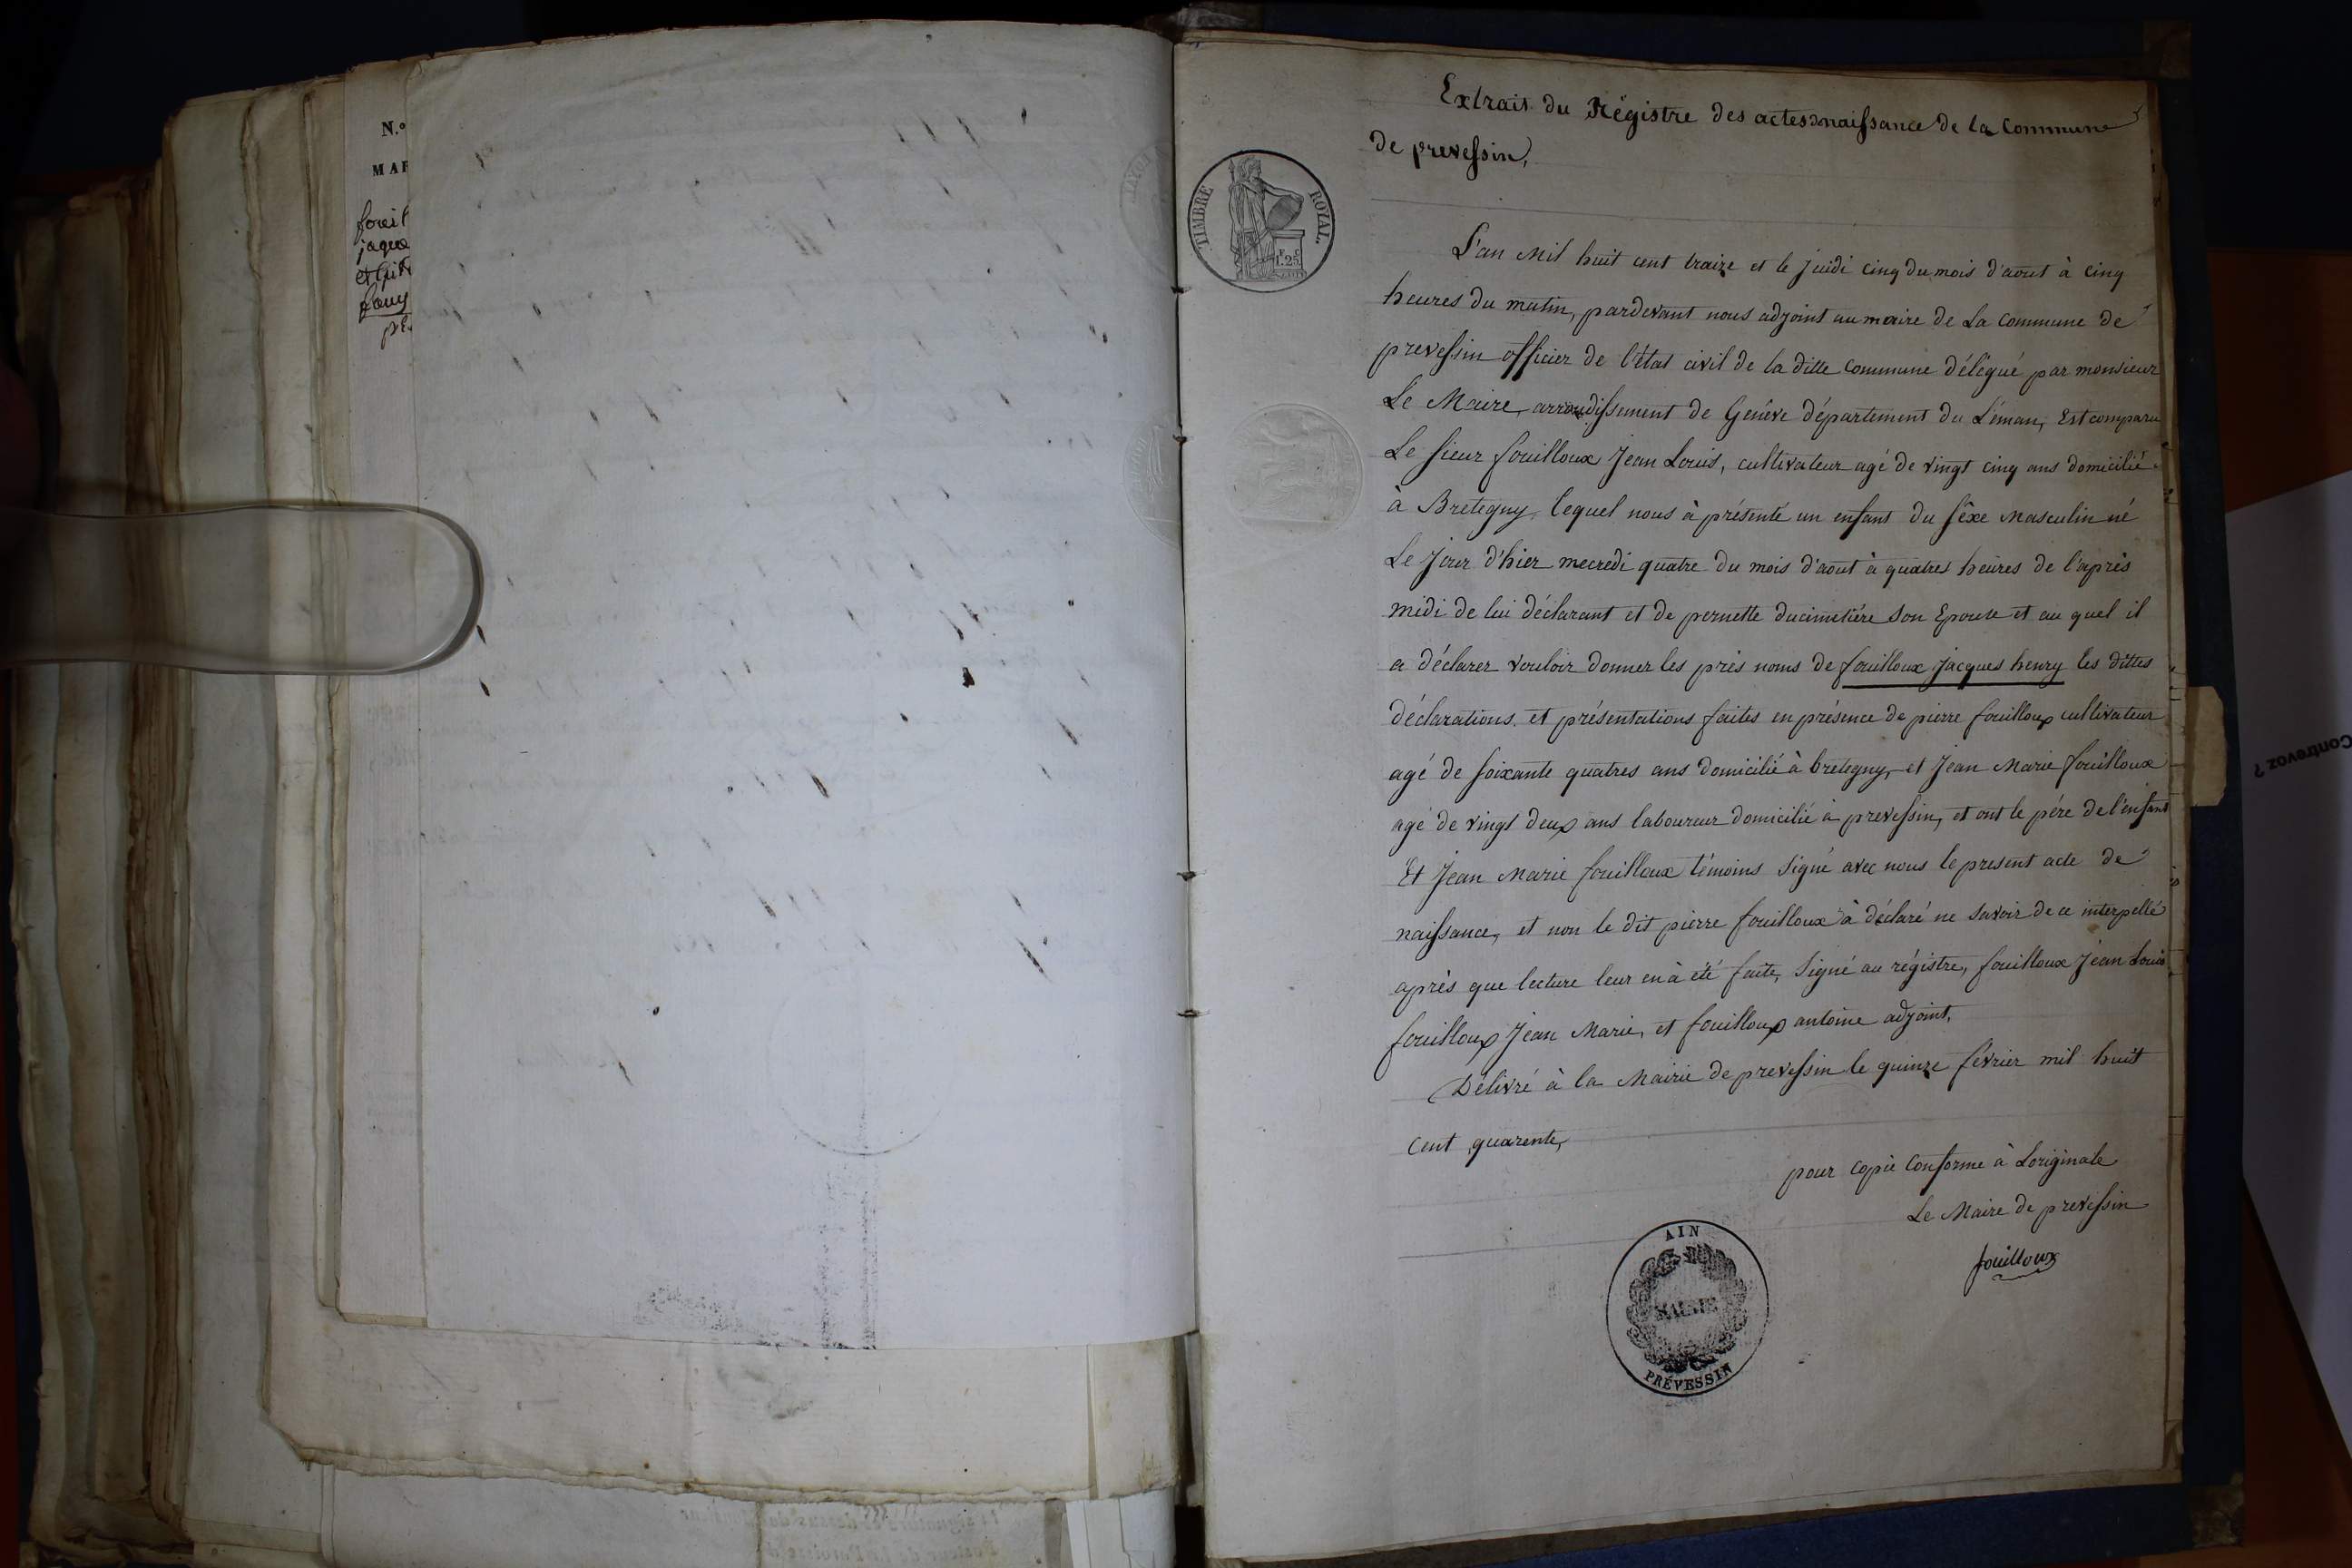 N.º
MAR
jaque
Extrait du Régistre des actes naissance de la Commune
de prevessin,
TIMBRE ROYAL.
1.25
L'an Mil huit cent traize et le juidi cinq du mois d'aout à cinq
heures du matin, pardevant nous adjoint au maire de la commune de
prevessin officier de l'état civil de la ditte commune délégué par monsieur
Le Maire, arrondissement de Genêve département du Léman, Est comparu
Le sieur fouilloux Jean Louis, cultivateur agé de vingt cinq ans domicilié
à Bretegny, lequel nous à présenté un enfant du sêxe Masculin né
Le Jour d'hier mecredi quatre du mois d'aout à quatres heures de l'après
midi de lui déclarant et de pernette ducimetiére son Epouse et au quel il
a déclarer vouloir donner les près noms de fouilloux jacques henry les dittes
déclarations et présentations faites en présence de pierre fouilloux cultivateur
agé de soixante quatres ans domicilié à bretegny, et Jean Marie fouilloux
agé de vingt deux ans laboureur domicilié à prevessin, et ont le pére de l'enfant
Et Jean Marie fouilloux témoins signé avec nous le present acte de
naissance, et non le dit pierre fouilloux à déclaré ne savoir de ce interpellé
après que lecture leur en à été faite, signé au régistre, fouilloux Jean Louis
fouilloux Jean Marie, et fouilloux antoine adjoint.
Délivré à la Mairie de prevessin le quinze février mil huit
cent quarente,
pour copie Conforme à Loriginale
Le Maire de prevessin
fouilloux
AIN
MAIRIE
PRÉVESSIN
Contrevoz ?